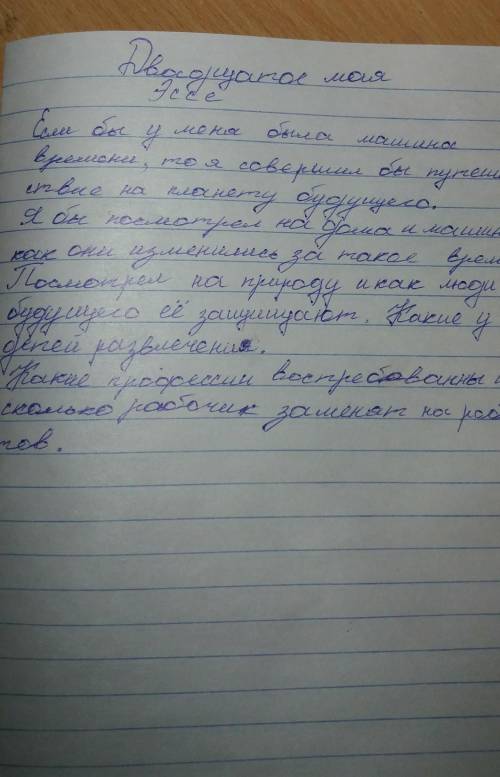 Двадцатое мая
Эссе
Если бы у меня была машина
времени, то я совершил бы путеше
ствие на планету будущего.
Я бы посмотрел на дома и машины
как они изменились за такое время
Посмотрел на природу и как люди
будущего её защищают. Какие у
детей развлечения.
Какие профессии востребованны и
сколько рабочих заменят на робо
тов.